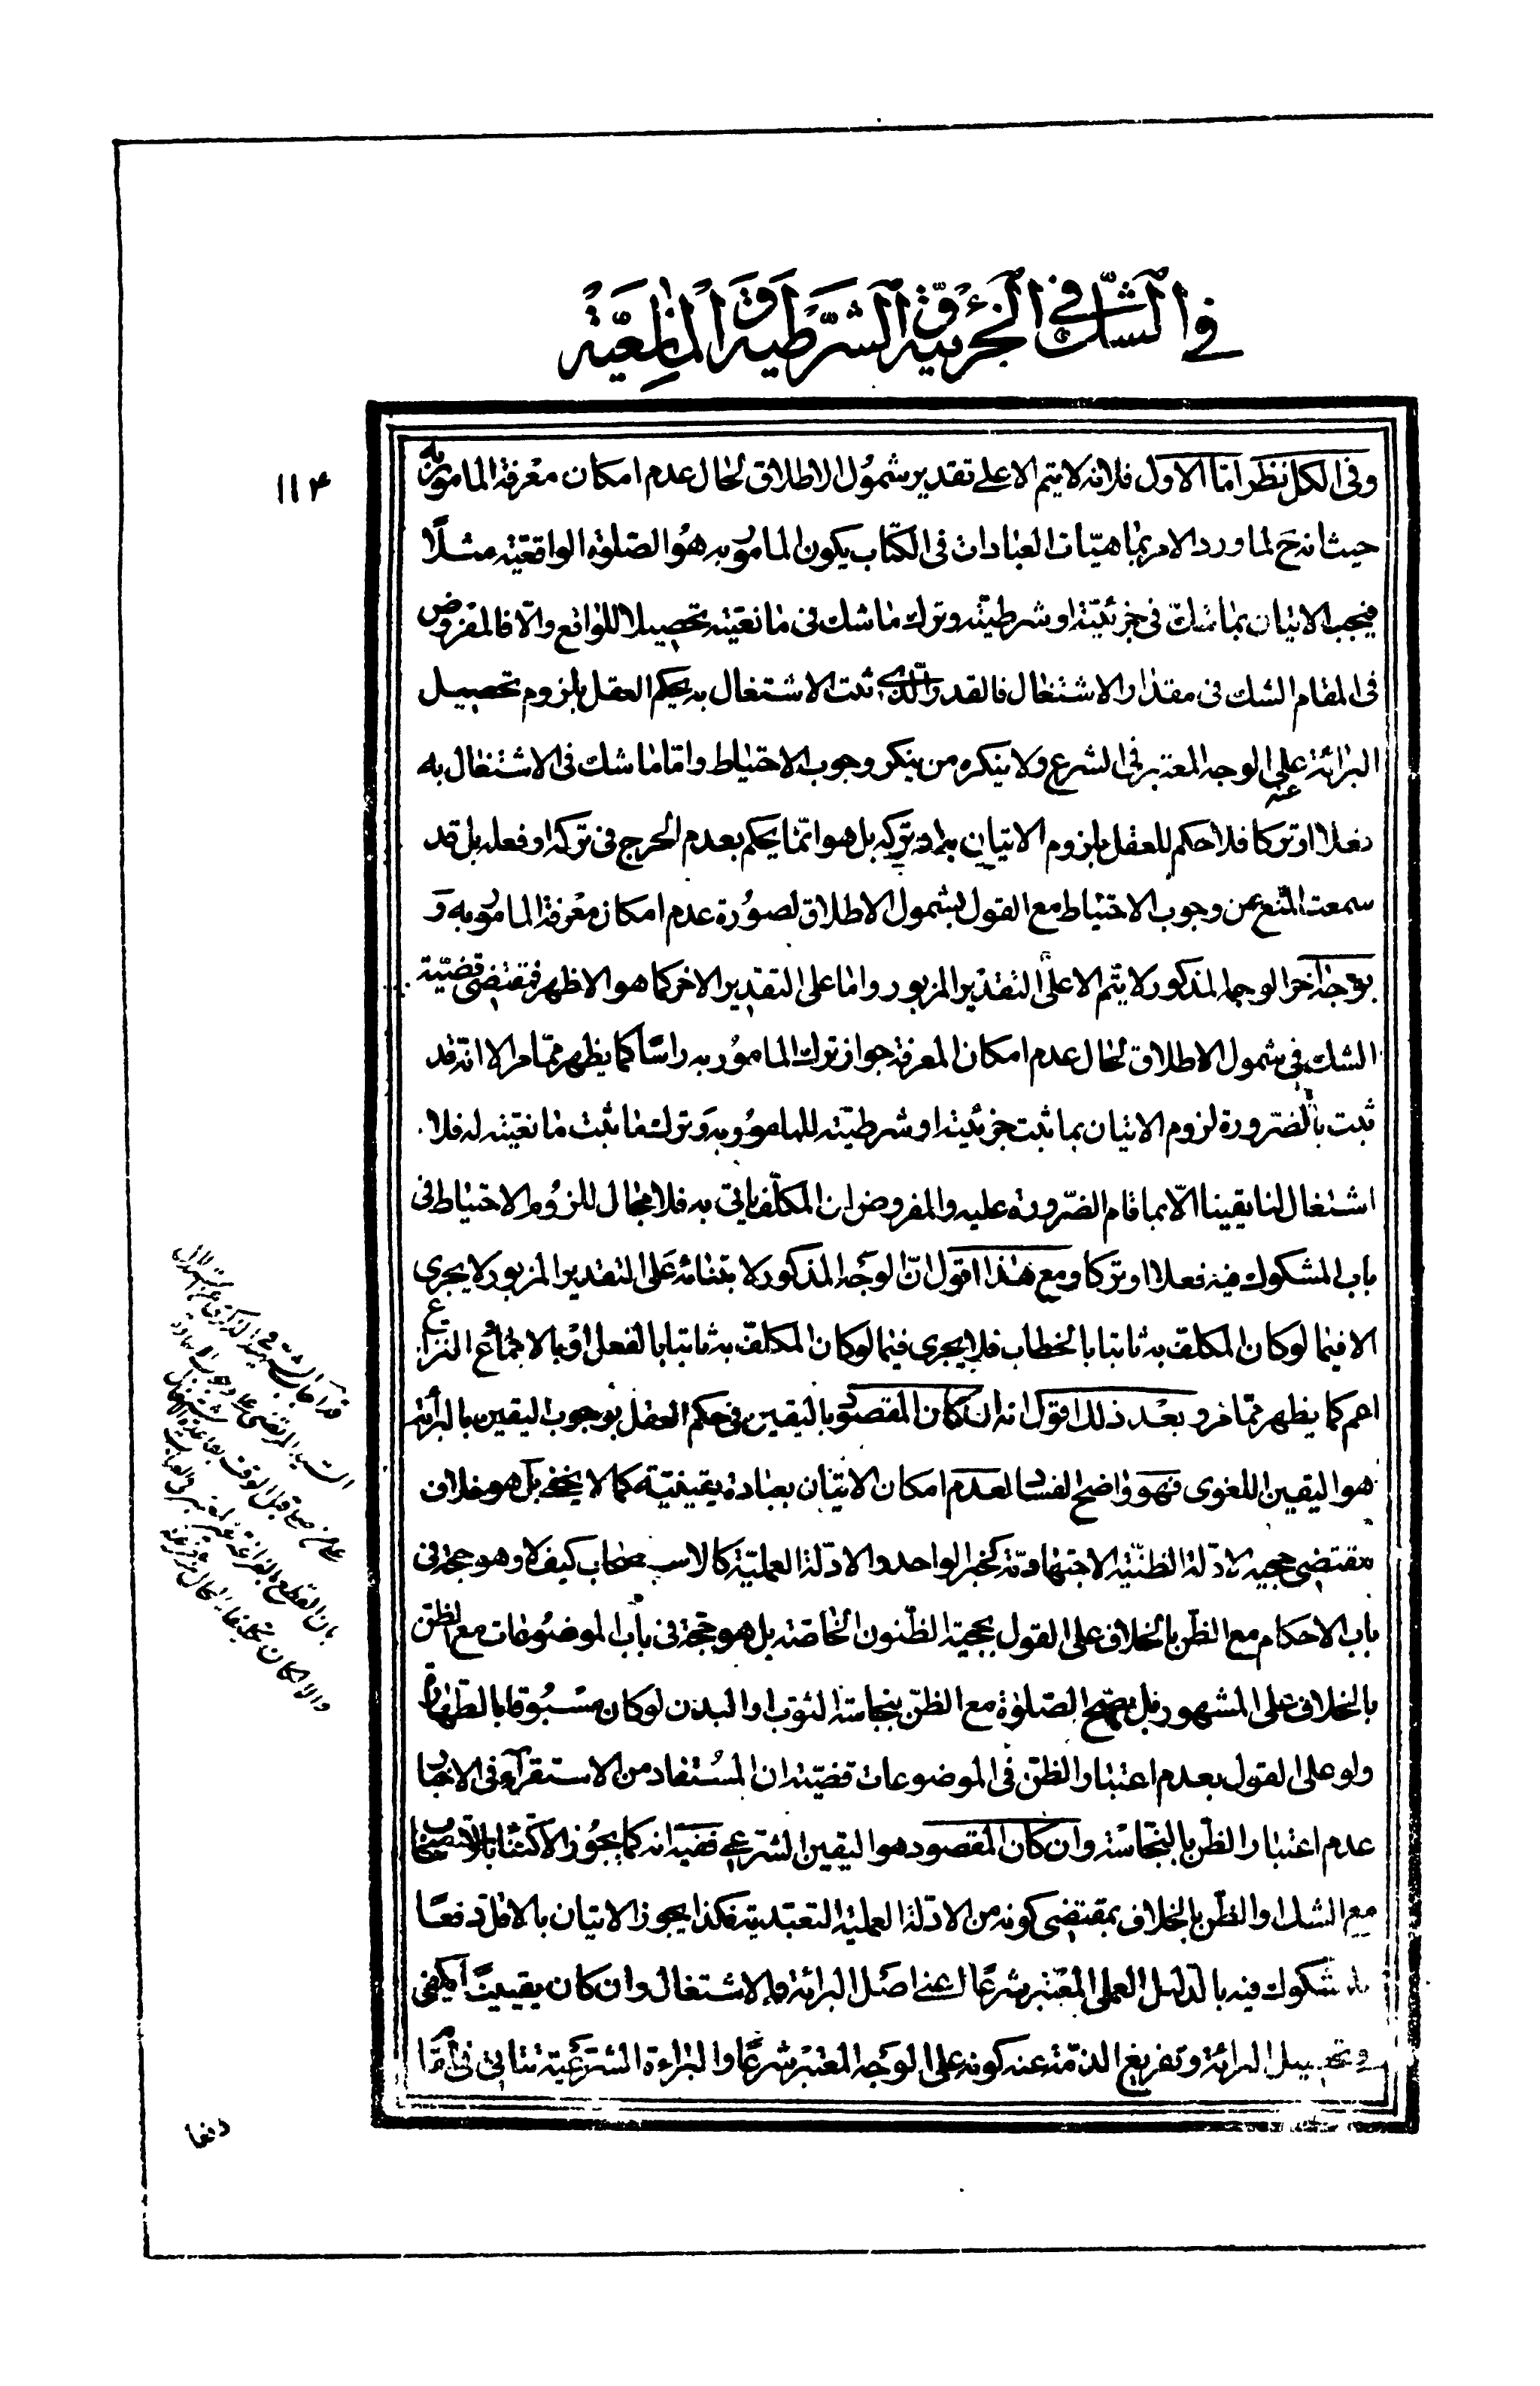 في الشك في الجزئية والشرطية والمانعية
١١۴
وفى الكل نظر امّا الاول فلانه لا يتم الا على تقدير شمول الاطلاق لحال عدم امكان معرفة المامور به
حيث انه ح لما ورد الامر بماهيّات العبادات فى الكتاب يكون المامور به هو الصّلوة الواقعيّة مثلًا
فيجب الاتيان بما شك فى جزئيّته او شرطيّته وترك ما شك فى مانعيّته تحصيلا للواقع والّا فالمفروض
فى المقام الشك فى مقدار الاشتغال فالقدر الّذى ثبت الاشتغال به يحكم العقل بلزوم تحصيل
البرائة عنه على الوجه المعتبر فى الشرع ولا ينكره من ينكر وجوب الاحتياط وامّا ما شك فى الاشتغال به
فعلا او تركا فلا حكم للعقل بلزوم الاتيان به او تركه بل هو انّما يحكم بعدم الحرج فى تركه او فعله بل قد
سمعت المنع عن وجوب الاحتياط مع القول بشمول الاطلاق لصورة عدم امكان معرفة المامور به و
بوجه اخر الوجه المذكور لا يتّم الا على التقدير المزبور واما على التقدير الاخر كما هو الاظهر فمقتضى قضيّة
الشك فى شمول الاطلاق لحال عدم امكان المعرفة جواز ترك المامور به راسًا كما يظهر ممّا مر الا انّه قد
ثبت بالضرورة لزوم الاتيان بما ثبت جزئيته او شرطيّته للمامور به وترك ما ثبت مانعيّته له فلا
اشتغال لنا يقينا الّا بما قام الضّرورة عليه والمفروض ان المكلّف ياتى به فلا مجال للزوم الاحتياط فى
باب المشكوك فيه فعلا او تركا ومع هذا اقول انّ الوجه المذكور لابتنائه على التقدير المزبور لا يجرى
الا فيما لو كان المكلف به ثابتا بالخطاب فلا يجرى فيما لو كان المكلّف به ثابتا بالفعل او بالاجماع والنزاع
اعم كما يظهر ممّا مر وبعد ذلك اقول انه ان كان المقصود باليقين فى حكم العقل بوجوب اليقين بالبرائة
هو اليقين اللغوى فهو واضح الفساد لعدم امكان الاتيان بعبادة يقينيّة كما لا يخفى بل هو خلاف
مقتضى حجيه الادّلة الظنّية الاجتهاديّة كخبر الواحد والادلّة العمليّة كالاستصحاب كيف لا وهو حجة فى
باب الاحكام مع الظنّ بالخلاف على القول بحجيّة الظنون الخاصّة بل هو حجة فى باب الموضوعات مع الظنّ
بالخلاف على المشهور فبل يصحّ الصّلوة مع الظنّ بنجاسة الثوب او البدن لو كان مسبوقا بالطّهارة
ولو على القول بعدم اعتبار الظنّ فى الموضوعات قضيّة ان المستفاد من الاستقراء فى الاخبار
عدم اعتبار الظنّ بالنّجاسة وان كان المقصود هو اليقين الشرعى ففيه انه كما يجوز الاكتفاء بالاستصحاب
مع الشك او الظّن بالخلاف بمقتضى كونه من الادلّة العملية التعبّدية فكذا يجوز الاتيان بالاقل دفعًا
للمشكوك فيه بالدليل العملى المعتبر شرعًا اعنى اصل البرائة فالاشتغال وان كان يقينيًّا لكن يكفى
فى تحصيل البرائة وتفريغ الذمّة عنه كونه على الوجه المعتبر شرعًا والبراءة الشرعيّة تتاتى فى المقام
السيد المرتضى
والامكان
دفعا